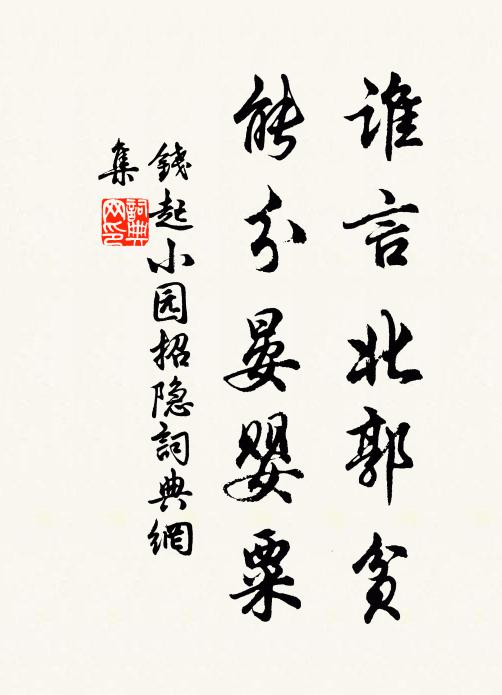 谁言北郭贫
能分晏婴粟
錢起小园招隐詞典網
集
詞典网印